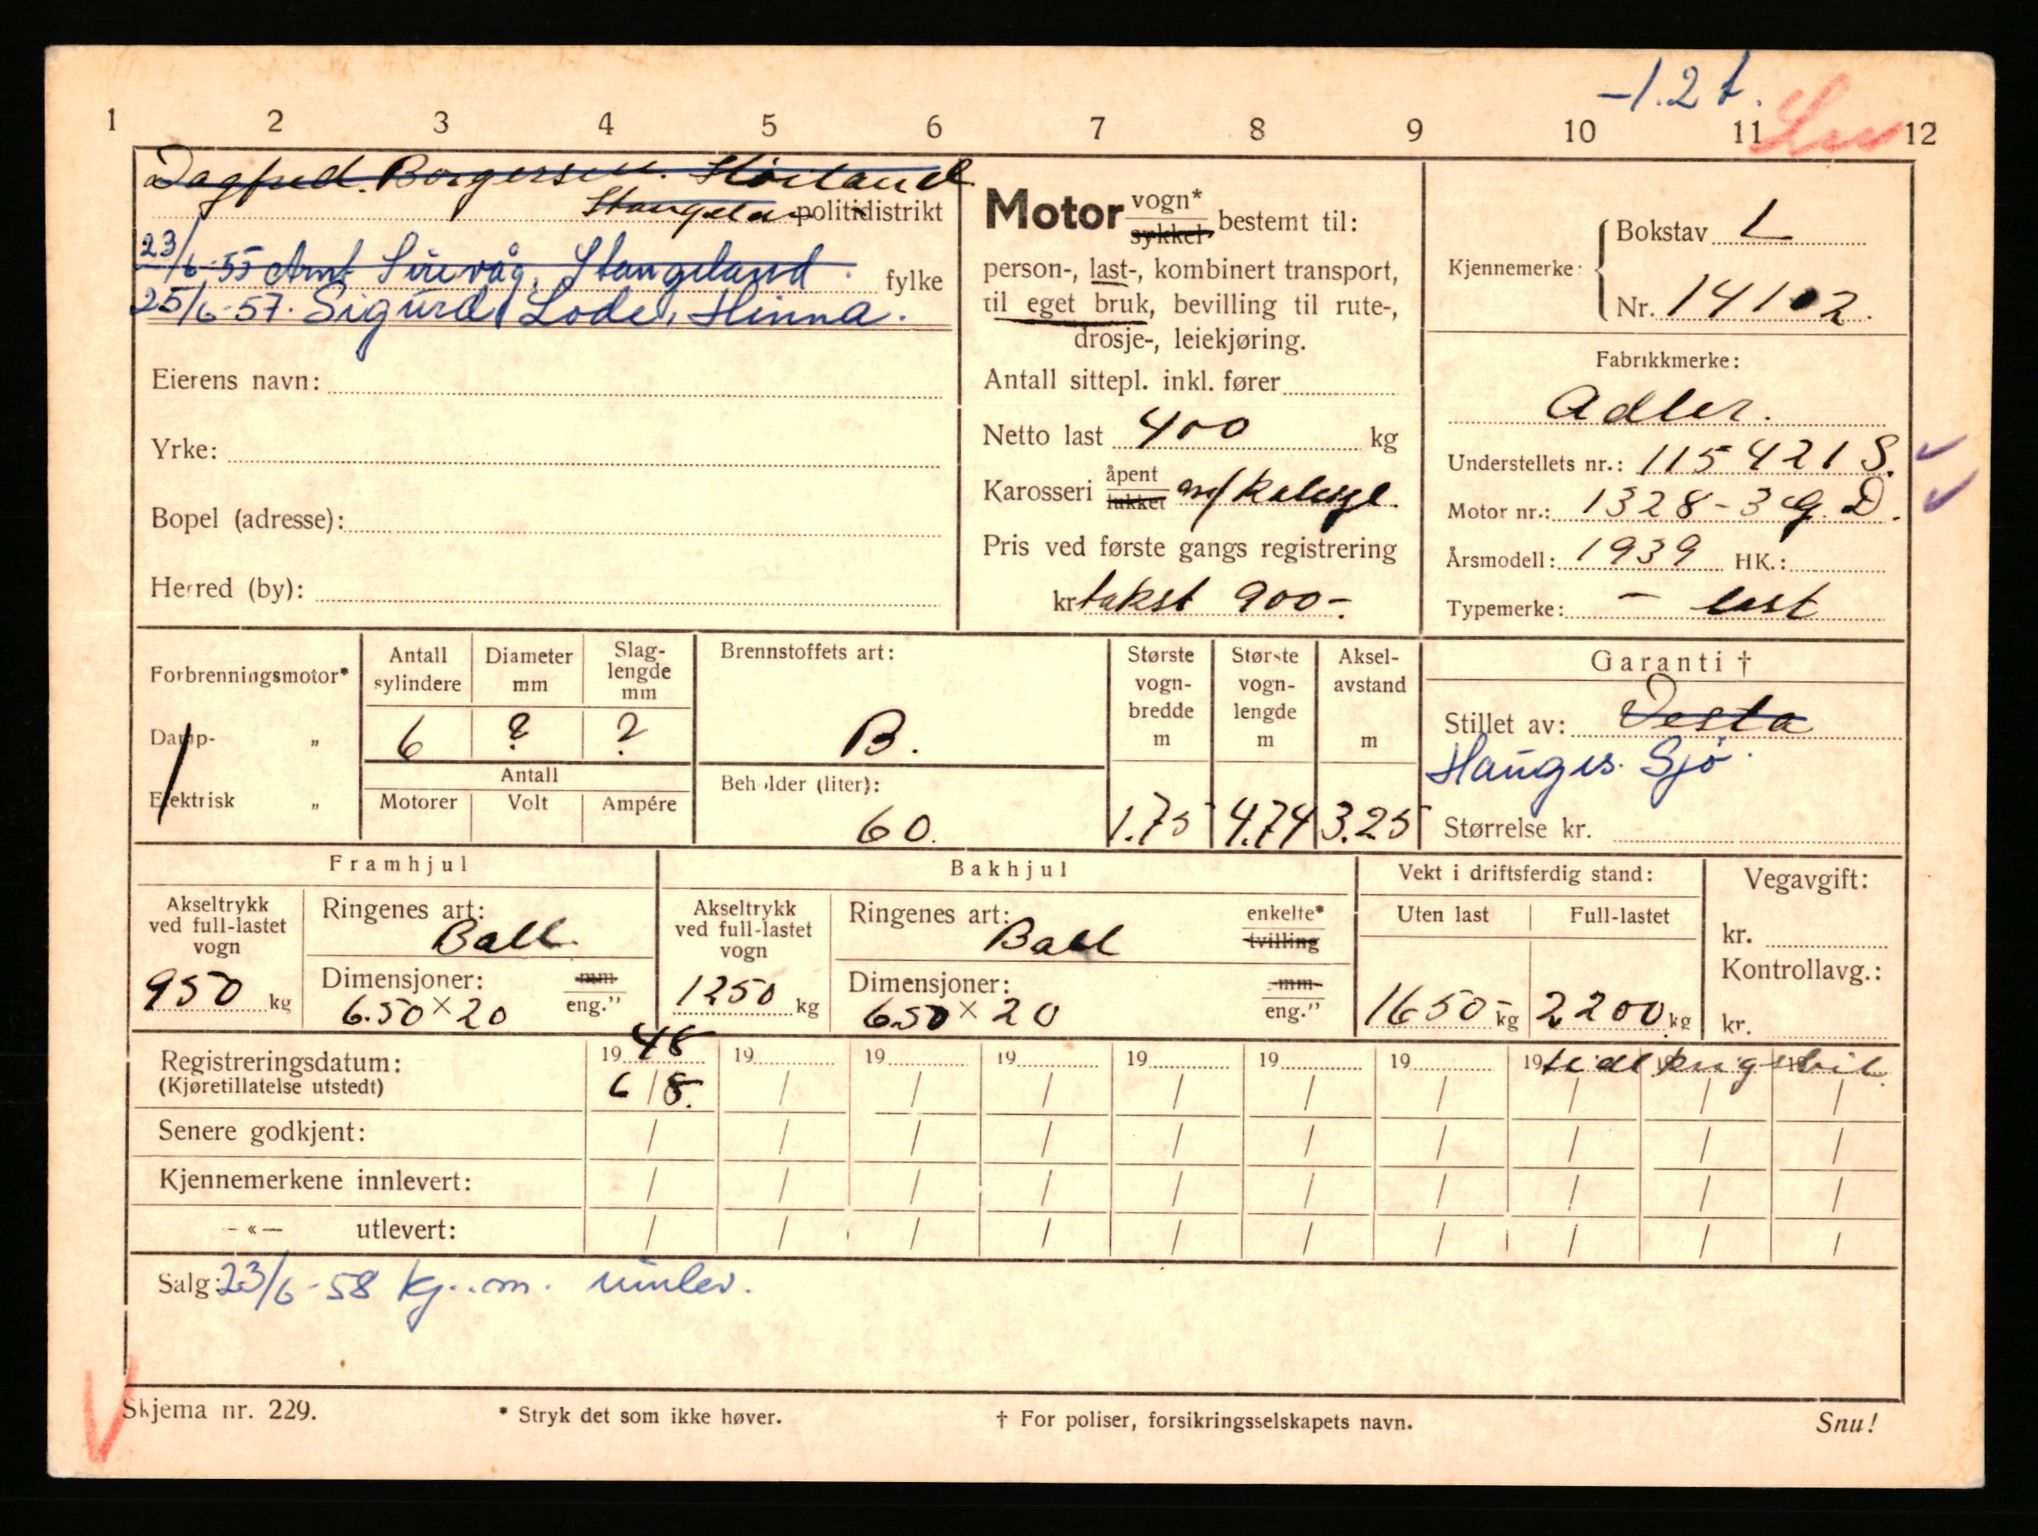 -1.2 t.
1 2 3 4 5 6 7 8 9 10 11 12
Dagfred. Borgersen. Høiland
Stangeland politidistrikt
23/6-55 Amt Sirevåg, Stangeland. fylke
25/6-57. Sigurd Lode, Hinna.
Eierens navn:
Yrke:
Bopel (adresse):
Herred (by):
Motor vogn* sykkel bestemt til:
person-, last-, kombinert transport,
til eget bruk, bevilling til rute-,
drosje-, leiekjøring.
Antall sittepl. inkl. fører
Netto last 400 kg
Karosseri åpent lukket m/kalesje.
Pris ved første gangs registrering
kr takst 900-.
Kjennemerke: Bokstav L
Nr. 14102.
Fabrikkmerke:
Adler.
Understellets nr.: 115421 S.
Motor nr.: 1328-3 G. D.
Årsmodell: 1939 HK.:
Typemerke: - last
Forbrenningsmotor*
Damp- „
Elektrisk „
Antall sylindere Diameter mm Slaglengde mm
6 ? ?
Antall
Motorer Volt Ampére
Brennstoffets art:
B.
Beholder (liter):
60.
Største vogn-bredde m Største vogn-lengde m Aksel-avstand m
1.75 4.74 3.25
Garanti †
Stillet av: Vesta
Hauges. Sjø.
Størrelse kr.
Framhjul
Akseltrykk ved full-lastet vogn
950 kg
Ringenes art: Ball.
Dimensjoner: mm
6.50 x 20 eng."
Bakhjul
Akseltrykk ved full-lastet vogn
1250 kg
Ringenes art: Ball enkelte* tvilling
Dimensjoner: mm
6.50 x 20 eng."
Vekt i driftsferdig stand:
Uten last Full-lastet
1650- kg 2200 kg
Vegavgift:
kr.
Kontrollavg.:
kr.
Registreringsdatum: 1948 19 19 19 19 19 19 19 tidl krigsbil.
(Kjøretillatelse utstedt) 6/8. / / / / / / / / /
Senere godkjent: / / / / / / / / / /
Kjennemerkene innlevert: / / / / / / / / / /
— « — utlevert: / / / / / / / / / /
Salg: 23/6-58 kj..m. innlev.
Skjema nr. 229.
* Stryk det som ikke høver.
† For poliser, forsikringsselskapets navn.
Snu!